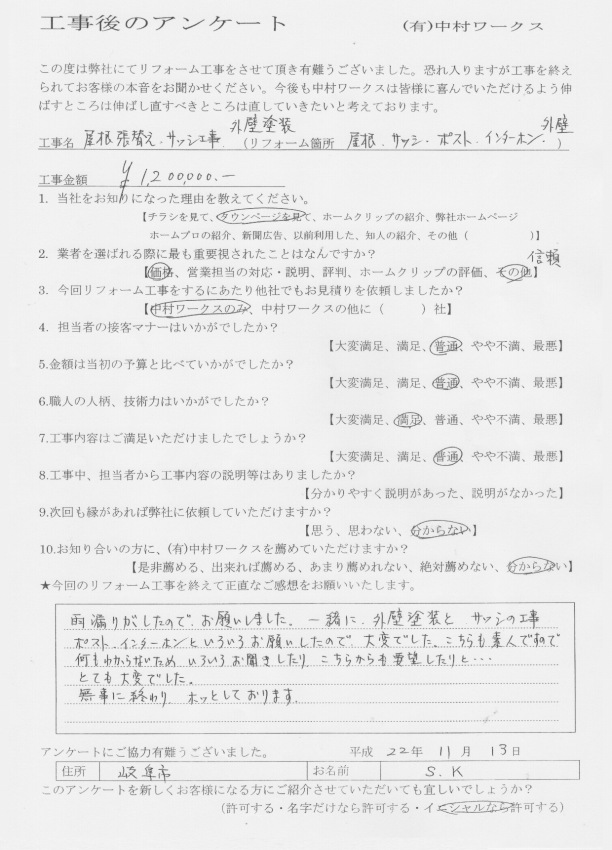 工事後のアンケート (有)中村ワークス
この度は弊社にてリフォーム工事をさせて頂き有難うございました。恐れ入りますが工事を終え
られてお客様の本音をお聞かせください。今後も中村ワークスは皆様に喜んでいただけるよう伸
ばすところは伸ばし直すべきところは直していきたいと考えております。
外壁塗装 外壁
工事名 屋根張替え・サッシ工事 (リフォーム箇所 屋根・サッシ・ポスト・インターホン・ )
工事金額 ¥1,200,000.-
1. 当社をお知りになった理由を教えてください。
【チラシを見て、タウンページを見て、ホームクリップの紹介、弊社ホームページ
ホームプロの紹介、新聞広告、以前利用した、知人の紹介、その他( )】
2. 業者を選ばれる際に最も重要視されたことはなんですか? 信頼
【価格、営業担当の対応・説明、評判、ホームクリップの評価、その他】
3. 今回リフォーム工事をするにあたり他社でもお見積りを依頼しましたか?
【中村ワークスのみ、中村ワークスの他に( )社】
4. 担当者の接客マナーはいかがでしたか?
【大変満足、満足、普通、やや不満、最悪】
5.金額は当初の予算と比べていかがでしたか?
【大変満足、満足、普通、やや不満、最悪】
6.職人の人柄、技術力はいかがでしたか?
【大変満足、満足、普通、やや不満、最悪】
7.工事内容はご満足いただけましたでしょうか?
【大変満足、満足、普通、やや不満、最悪】
8.工事中、担当者から工事内容の説明等はありましたか?
【分かりやすく説明があった、説明がなかった】
9.次回も縁があれば弊社に依頼していただけますか?
【思う、思わない、分からない】
10.お知り合いの方に、(有)中村ワークスを薦めていただけますか?
【是非薦める、出来れば薦める、あまり薦めれない、絶対薦めない、分からない】
★今回のリフォーム工事を終えて正直なご感想をお願いいたします。
雨漏りがしたので、お願いしました。一緒に、外壁塗装と サッシの工事
ポスト、インターホンといろいろお願いしたので、大変でした。こちらも素人ですので
何もわからないため、いろいろお聞きしたり、こちらからも要望したりと…
とても大変でした。
無事に終わり、ホッとしております。
アンケートにご協力有難うございました。 平成 22年 11月 13日
住所 岐阜市 お名前 S.K
このアンケートを新しくお客様になる方にご紹介させていただいても宜しいでしょうか?
(許可する・名字だけなら許可する・イニシャルなら許可する)